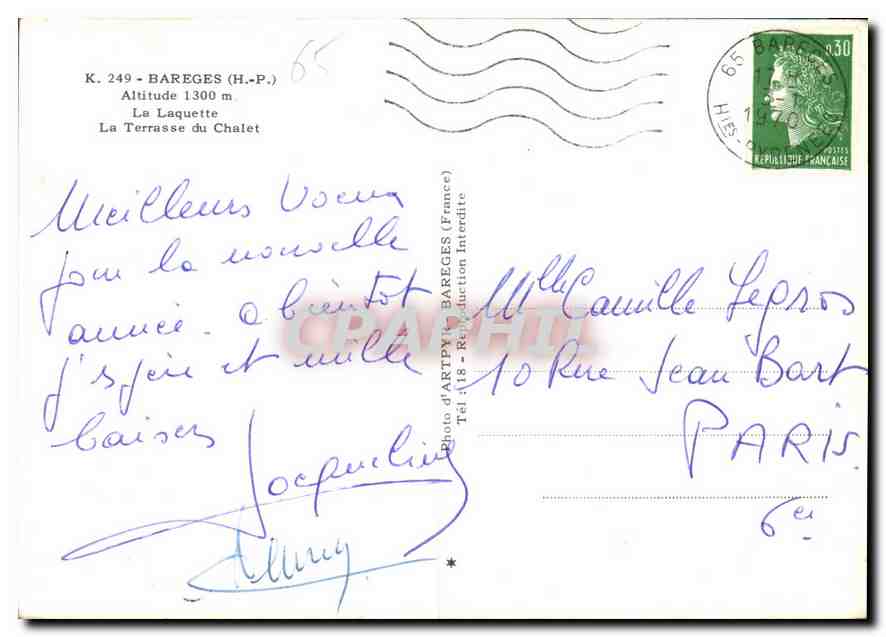 K. 249 - BAREGES (H.-P.)
Altitude 1300 m.
La Laquette
La Terrasse du Chalet
65
65 BAREGES
17 H
1970
HTES-PYRENEES
0,30
POSTES
REPUBLIQUE FRANÇAISE
Meilleurs Voeux
pour la nouvelle
année. A bientôt
j'espère et mille
baisers
Jacqueline
Photo d'ARTPYR - BAREGES (France)
Tél : 18 - Reproduction Interdite
Mlle Camille Legros
10 Rue Jean Bart
PARIS.
6e
CPAPHIL